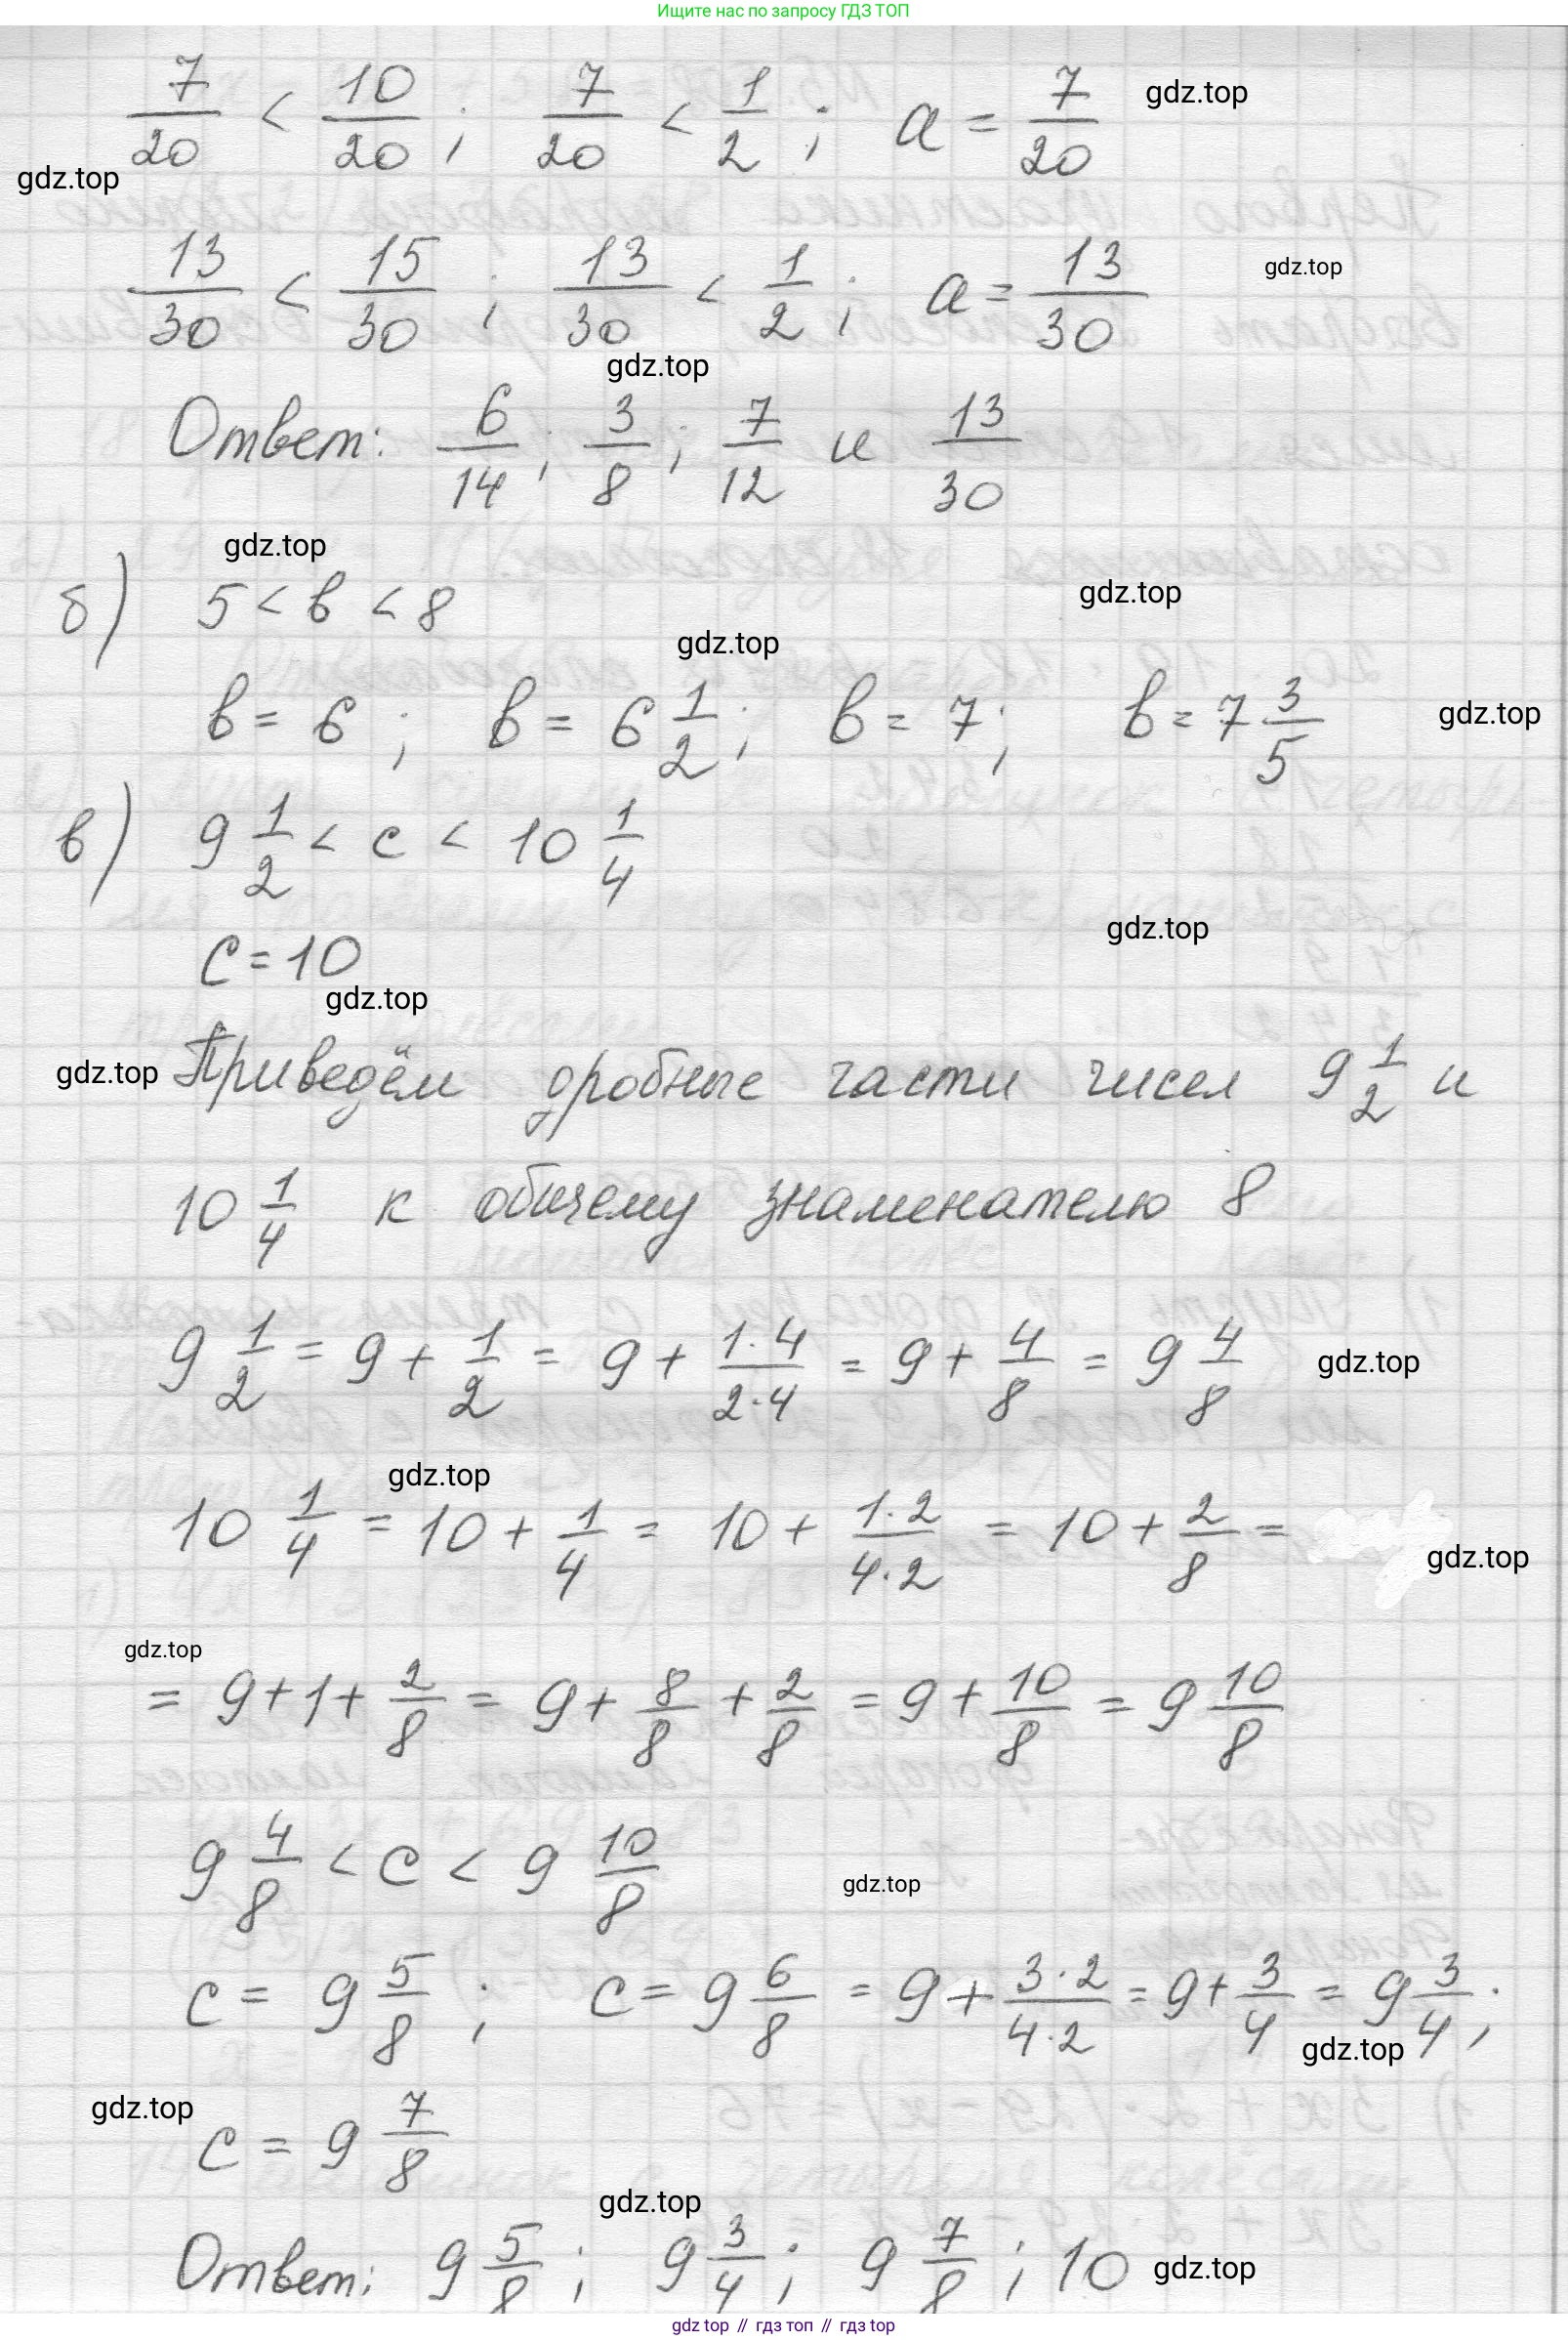 Ищите нас по запросу ГДЗ ТОП
7/20 < 10/20 ; 7/20 < 1/2 ; a = 7/20 gdz.top
gdz.top
13/30 < 15/30 ; 13/30 < 1/2 ; a = 13/30 gdz.top
gdz.top
Ответ: 6/14 ; 3/8 ; 7/12 и 13/30
gdz.top
б) 5 < в < 8 gdz.top
gdz.top
в = 6 ; в = 6 1/2 ; в = 7 ; в = 7 3/5 gdz.top
в) 9 1/2 < c < 10 1/4
gdz.top
c = 10
gdz.top
gdz.top Приведём дробные части чисел 9 1/2 и
10 1/4 к общему знаменателю 8
9 1/2 = 9 + 1/2 = 9 + 1·4/2·4 = 9 + 4/8 = 9 4/8 gdz.top
gdz.top
10 1/4 = 10 + 1/4 = 10 + 1·2/4·2 = 10 + 2/8 = gdz.top
gdz.top
= 9 + 1 + 2/8 = 9 + 8/8 + 2/8 = 9 + 10/8 = 9 10/8
9 4/8 < c < 9 10/8 gdz.top
c = 9 5/8 ; c = 9 6/8 = 9 + 3·2/4·2 = 9 + 3/4 = 9 3/4 ;
gdz.top
gdz.top c = 9 7/8
gdz.top
Ответ: 9 5/8 ; 9 3/4 ; 9 7/8 ; 10 gdz.top
gdz top // гдз топ // гдз top